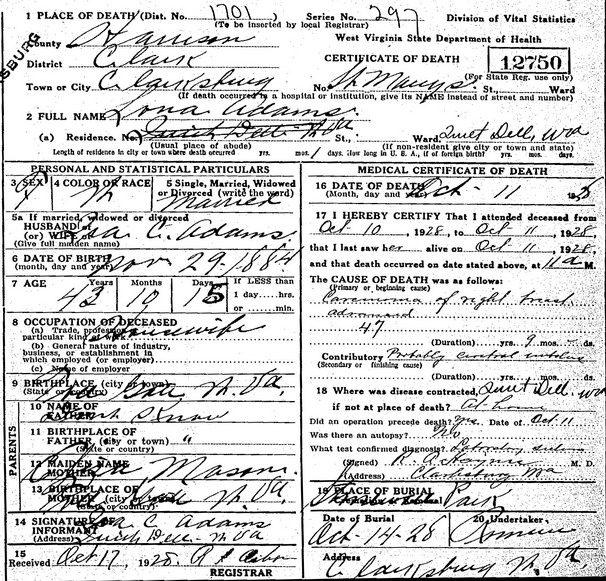 1 PLACE OF DEATH (Dist. No. 1701 Series No. 297 Division of Vital Statistics
(To be inserted by local Registrar)
County Harrison West Virginia State Department of Health
District Clark CERTIFICATE OF DEATH 12750
Town or City Clarksburg No. St Marys St., Ward (For State Reg. use only)
(If death occurred in a hospital or institution, give its NAME instead of street and number)
2 FULL NAME Lona Adams
(a) Residence. No. Quiet Dell W Va St., Ward, Quiet Dell, W va
(Usual place of abode) (If non-resident give city or town and state)
Length of residence in city or town where death occurred yrs. mos. 1 days. How long in U. S. A., if of foreign birth? yrs. mos. days.
PERSONAL AND STATISTICAL PARTICULARS
3 SEX F 4 COLOR OR RACE W 5 Single, Married, Widowed or Divorced (write the word) Married
5a If married, widowed or divorced
HUSBAND of
(or) WIFE of C. Adams
(Give full maiden name)
6 DATE OF BIRTH
(month, day and year) Nov 29-1884
7 AGE Years 43 Months 10 Days 15 If LESS than
1 day......hrs.
or......min.
8 OCCUPATION OF DECEASED
(a) Trade, profession or
particular kind of work Housewife
(b) General nature of industry,
business, or establishment in
which employed (or employer)
(c) Name of employer
9 BIRTHPLACE (city or town) W. Va.
(State or country)
PARENTS
10 NAME OF
FATHER
11 BIRTHPLACE OF
FATHER, (city or town) "
(State or country)
12 MAIDEN NAME
MOTHER Mason
13 BIRTHPLACE OF
MOTHER (city or town) W Va
(State or country)
14 SIGNATURE OF
INFORMANT C Adams
(Address) Quiet Dell W Va
15
Received Oct 17, 1928
REGISTRAR
MEDICAL CERTIFICATE OF DEATH
16 DATE OF DEATH
(Month, day and year) Oct - 11
17 I HEREBY CERTIFY That I attended deceased from
Oct 10 1928, to Oct 11, 1928
that I last saw her alive on Oct 11, 1928,
and that death occurred on date stated above, at 11 a M.
The CAUSE OF DEATH was as follows:
(Primary or beginning cause)
Carcinoma of right breast
advanced
47
(Duration) yrs. 9 mos. ds.
Contributory Probably
(Secondary or finishing cause)
(Duration) yrs. mos. ds.
18 Where was disease contracted, Quiet Dell, W va
if not at place of death? At home
Did an operation precede death? yes Date of Oct 11
Was there an autopsy? No
What test confirmed diagnosis? Laboratory
(Signed) M. D.
(Address) Clarksburg
19 PLACE OF BURIAL
Park
Date of Burial 20 Undertaker
Oct-14-28
Address
Clarksburg W Va